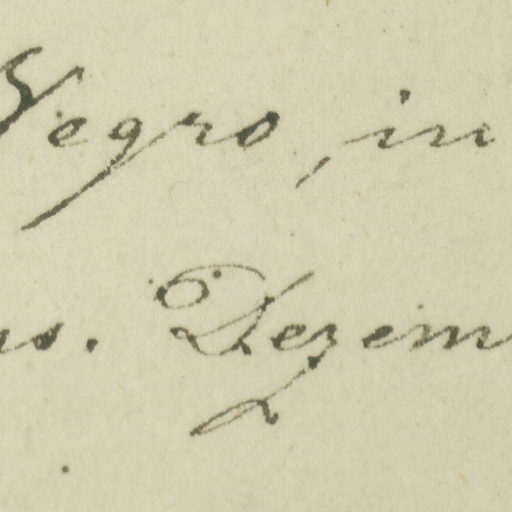 Negro, in
us. Dezem